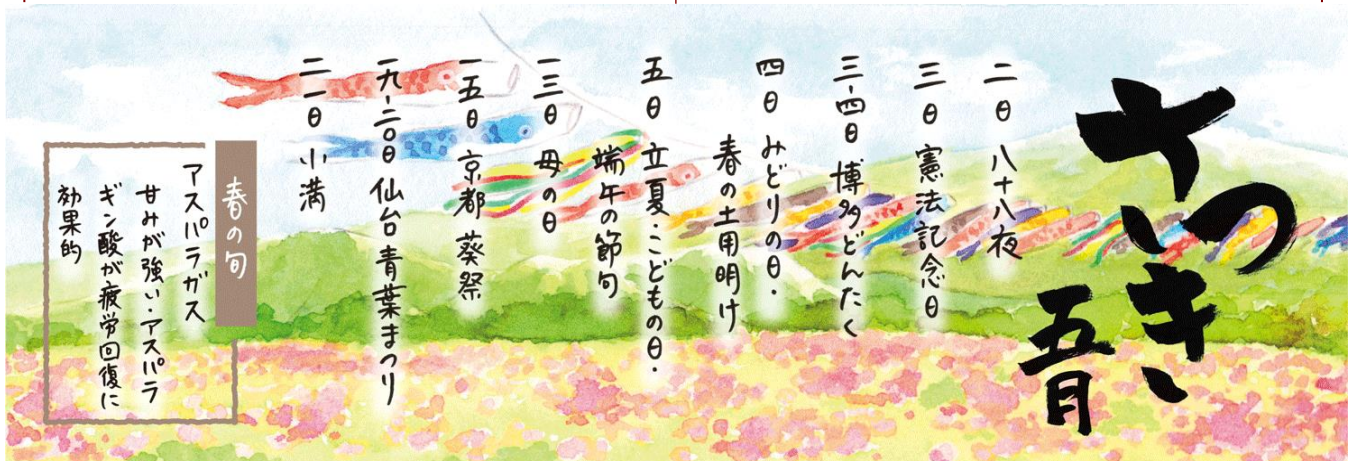 さつき
五月
二日 八十八夜
三日 憲法記念日
三・四日 博多どんたく
四日 みどりの日・
春の土用明け
五日 立夏・こどもの日・
端午の節句
一三日 母の日
一五日 京都 葵祭
一九・二〇日 仙台 青葉まつり
二一日 小満
春の旬
アスパラガス
甘みが強い・アスパラ
ギン酸が疲労回復に
効果的